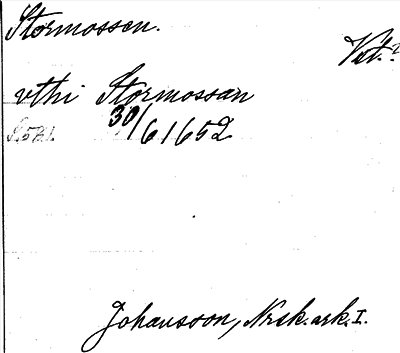 Stormossen.
Vet.?
vthi Stormossan
30/6 1652
Johansson, Nrsk. ark. I.